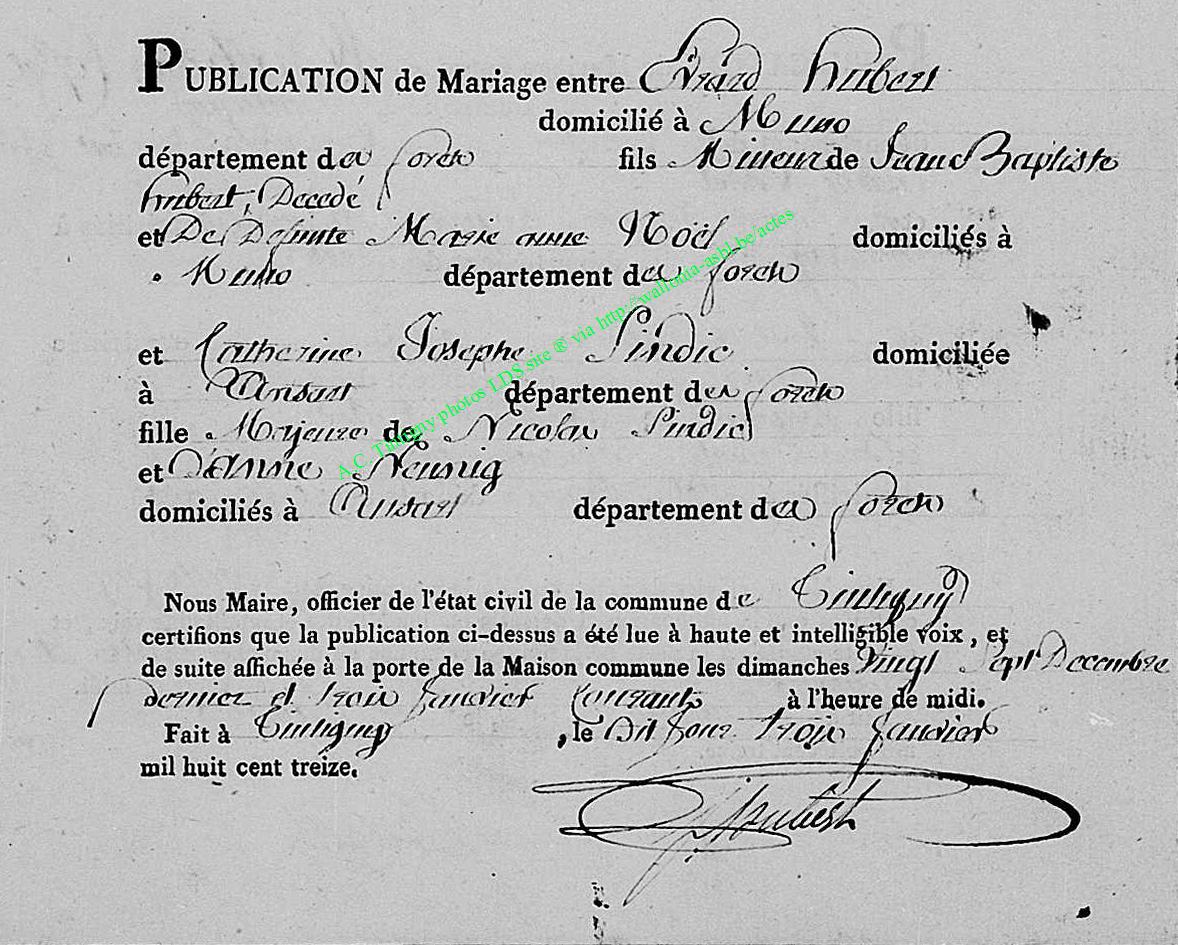 PUBLICATION de Mariage entre Evrard hubert
domicilié à Muno
département des forets fils Mineur de Jean Baptiste
hubert, Decedé
et De Defunte Marie anne Noël domiciliés à
Muno département des forets
et Catherine Josephe Sindic domiciliée
à Ansart département des forets
fille Majeure de Nicolas Sindic
et D'anne
domiciliés à Ansart département des forets
Nous Maire, officier de l'état civil de la commune de Tintigny
certifions que la publication ci-dessus a été lue à haute et intelligible voix, et
de suite affichée à la porte de la Maison commune les dimanches Vingt Sept Decembre
dernier et trois Janvier Courant à l'heure de midi.
Fait à Tintigny, le Dit Jour trois Janvier
mil huit cent treize.
hubert
A.C. Tintigny photos LDS site ® via http://wallonia-asbl.be/actes